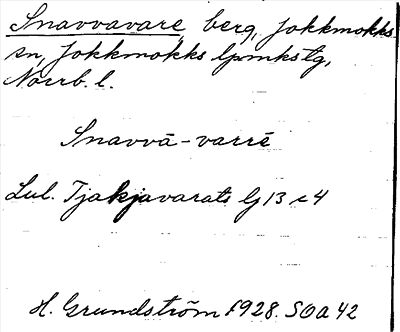 Snavvavare, berg, Jokkmokks
sn, Jokkmokks lpmkstg,
Norrb. l.
Snavvā-varrē
Lul. Tjakjavarats lj 13 c 4
H. Grundström 1928. SOA 42